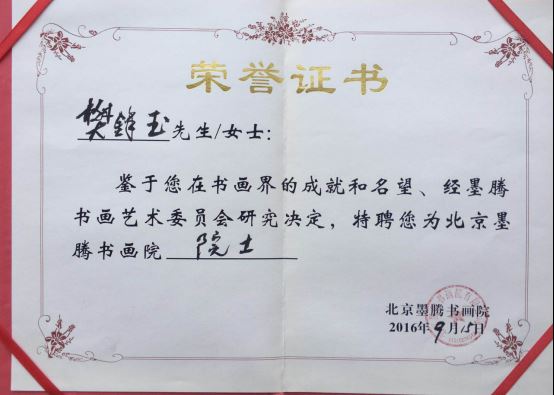 荣誉证书
樊锋玉先生/女士:
鉴于您在书画界的成就和名望、经墨腾
书画艺术委员会研究决定,特聘您为北京墨
腾书画院 院士
北京墨腾书画院
2016年9月15日